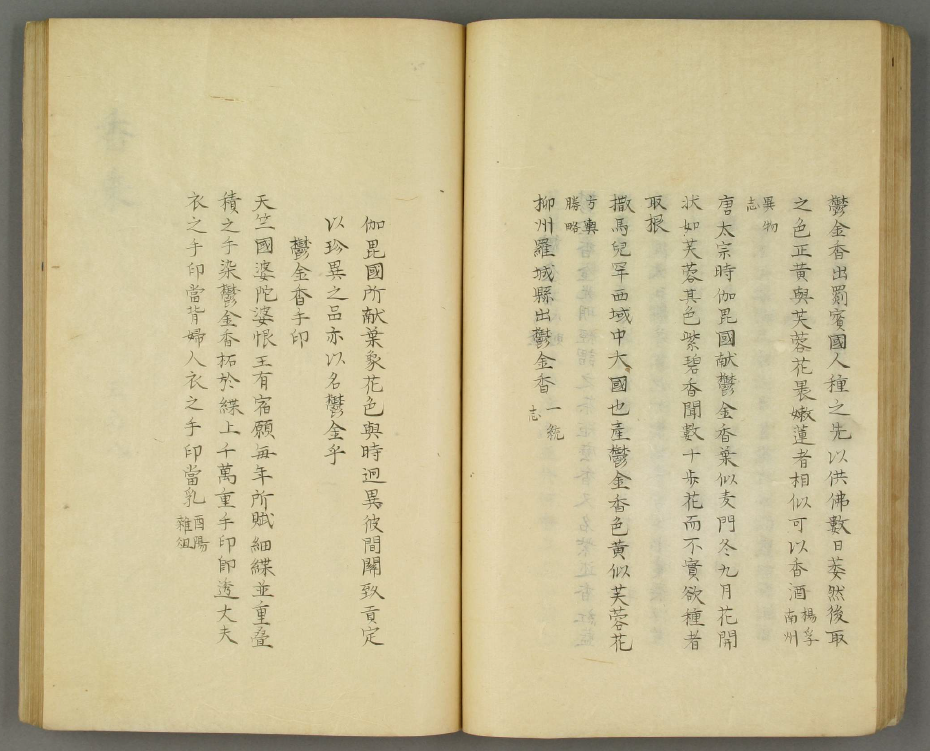 鬱金香出罽賓國人種之先以供佛數日萎然後取
之色正黃與芙蓉花裹嫩蓮者相似可以香酒 楊孚南州
異物志
唐太宗時伽毘國献鬱金香葉似麦門冬九月花開
狀如芙蓉其色紫碧香聞數十步花而不實欲種者
取根
撒馬兒罕西域中大國也產鬱金香色黄似芙蓉花
方輿勝略
柳州羅城縣出鬱金香 一統志
伽毘國所献葉象花色與時迥異彼間關致貢定
以珍異之品亦以名鬱金乎
鬱金香手印
天竺國婆陀婆恨王有宿願每年所賦細緤並重叠
積之手染鬱金香柘於緤上千萬重手印即透丈夫
衣之手印當背婦人衣之手印當乳 酉陽雜俎